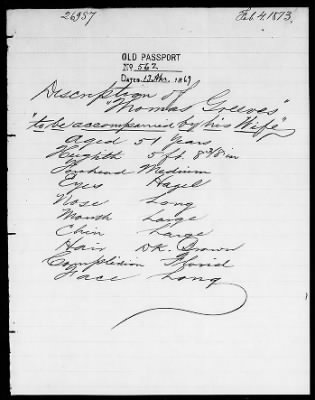 26957
Feb. 4. 1873.
OLD PASSPORT
No 562
Dated 13 Apr. 1869
Discription of
"Thomas Greeves"
"to be accompanied by his Wife"
aged 51 Years
Heighth 5 ft. 8 3/8 in
Forehead Medium
Eyes Hazel
Nose Long
Mouth Large
Chin Large
Hair Dk. Brown
Complidion Florid
Face Long